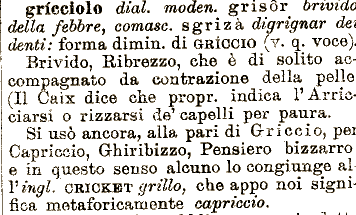 gríccïolo dial. moden. grisôr brivido
della febbre, comasc. sgrizà digrignar dei
denti: forma dimin. di GRÍCCIO (v. q. voce).
Brivido, Ribrezzo, che è di solito ac-
compagnato da contrazione della pelle
(Il Caix dice che propr. indica l'Arric-
ciarsi o rizzarsi de' capelli per paura.
Si usò ancora, alla pari di Griccio, per
Capriccio, Ghiribizzo, Pensiero bizzarro
e in questo senso alcuno lo congiunge al-
l'ingl. CRICKET grillo, che appo noi signi-
fica metaforicamente capriccio.